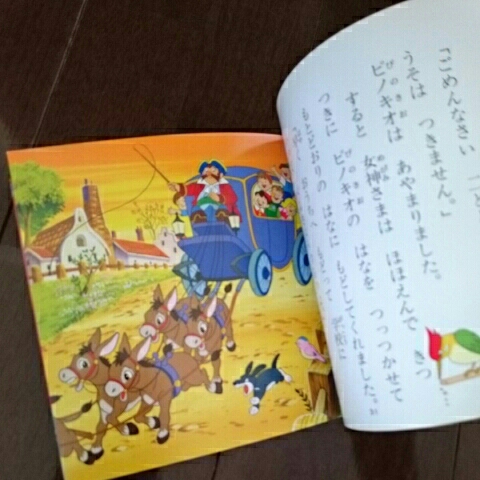 「ごめんなさい 
うそは つきません。」
ピノキオは あやまりました。
すると 女神さまは ほほえんで きつ
つきに ピノキオの はなを つっつかせて
もとどおりの はなに もどしてくれました。